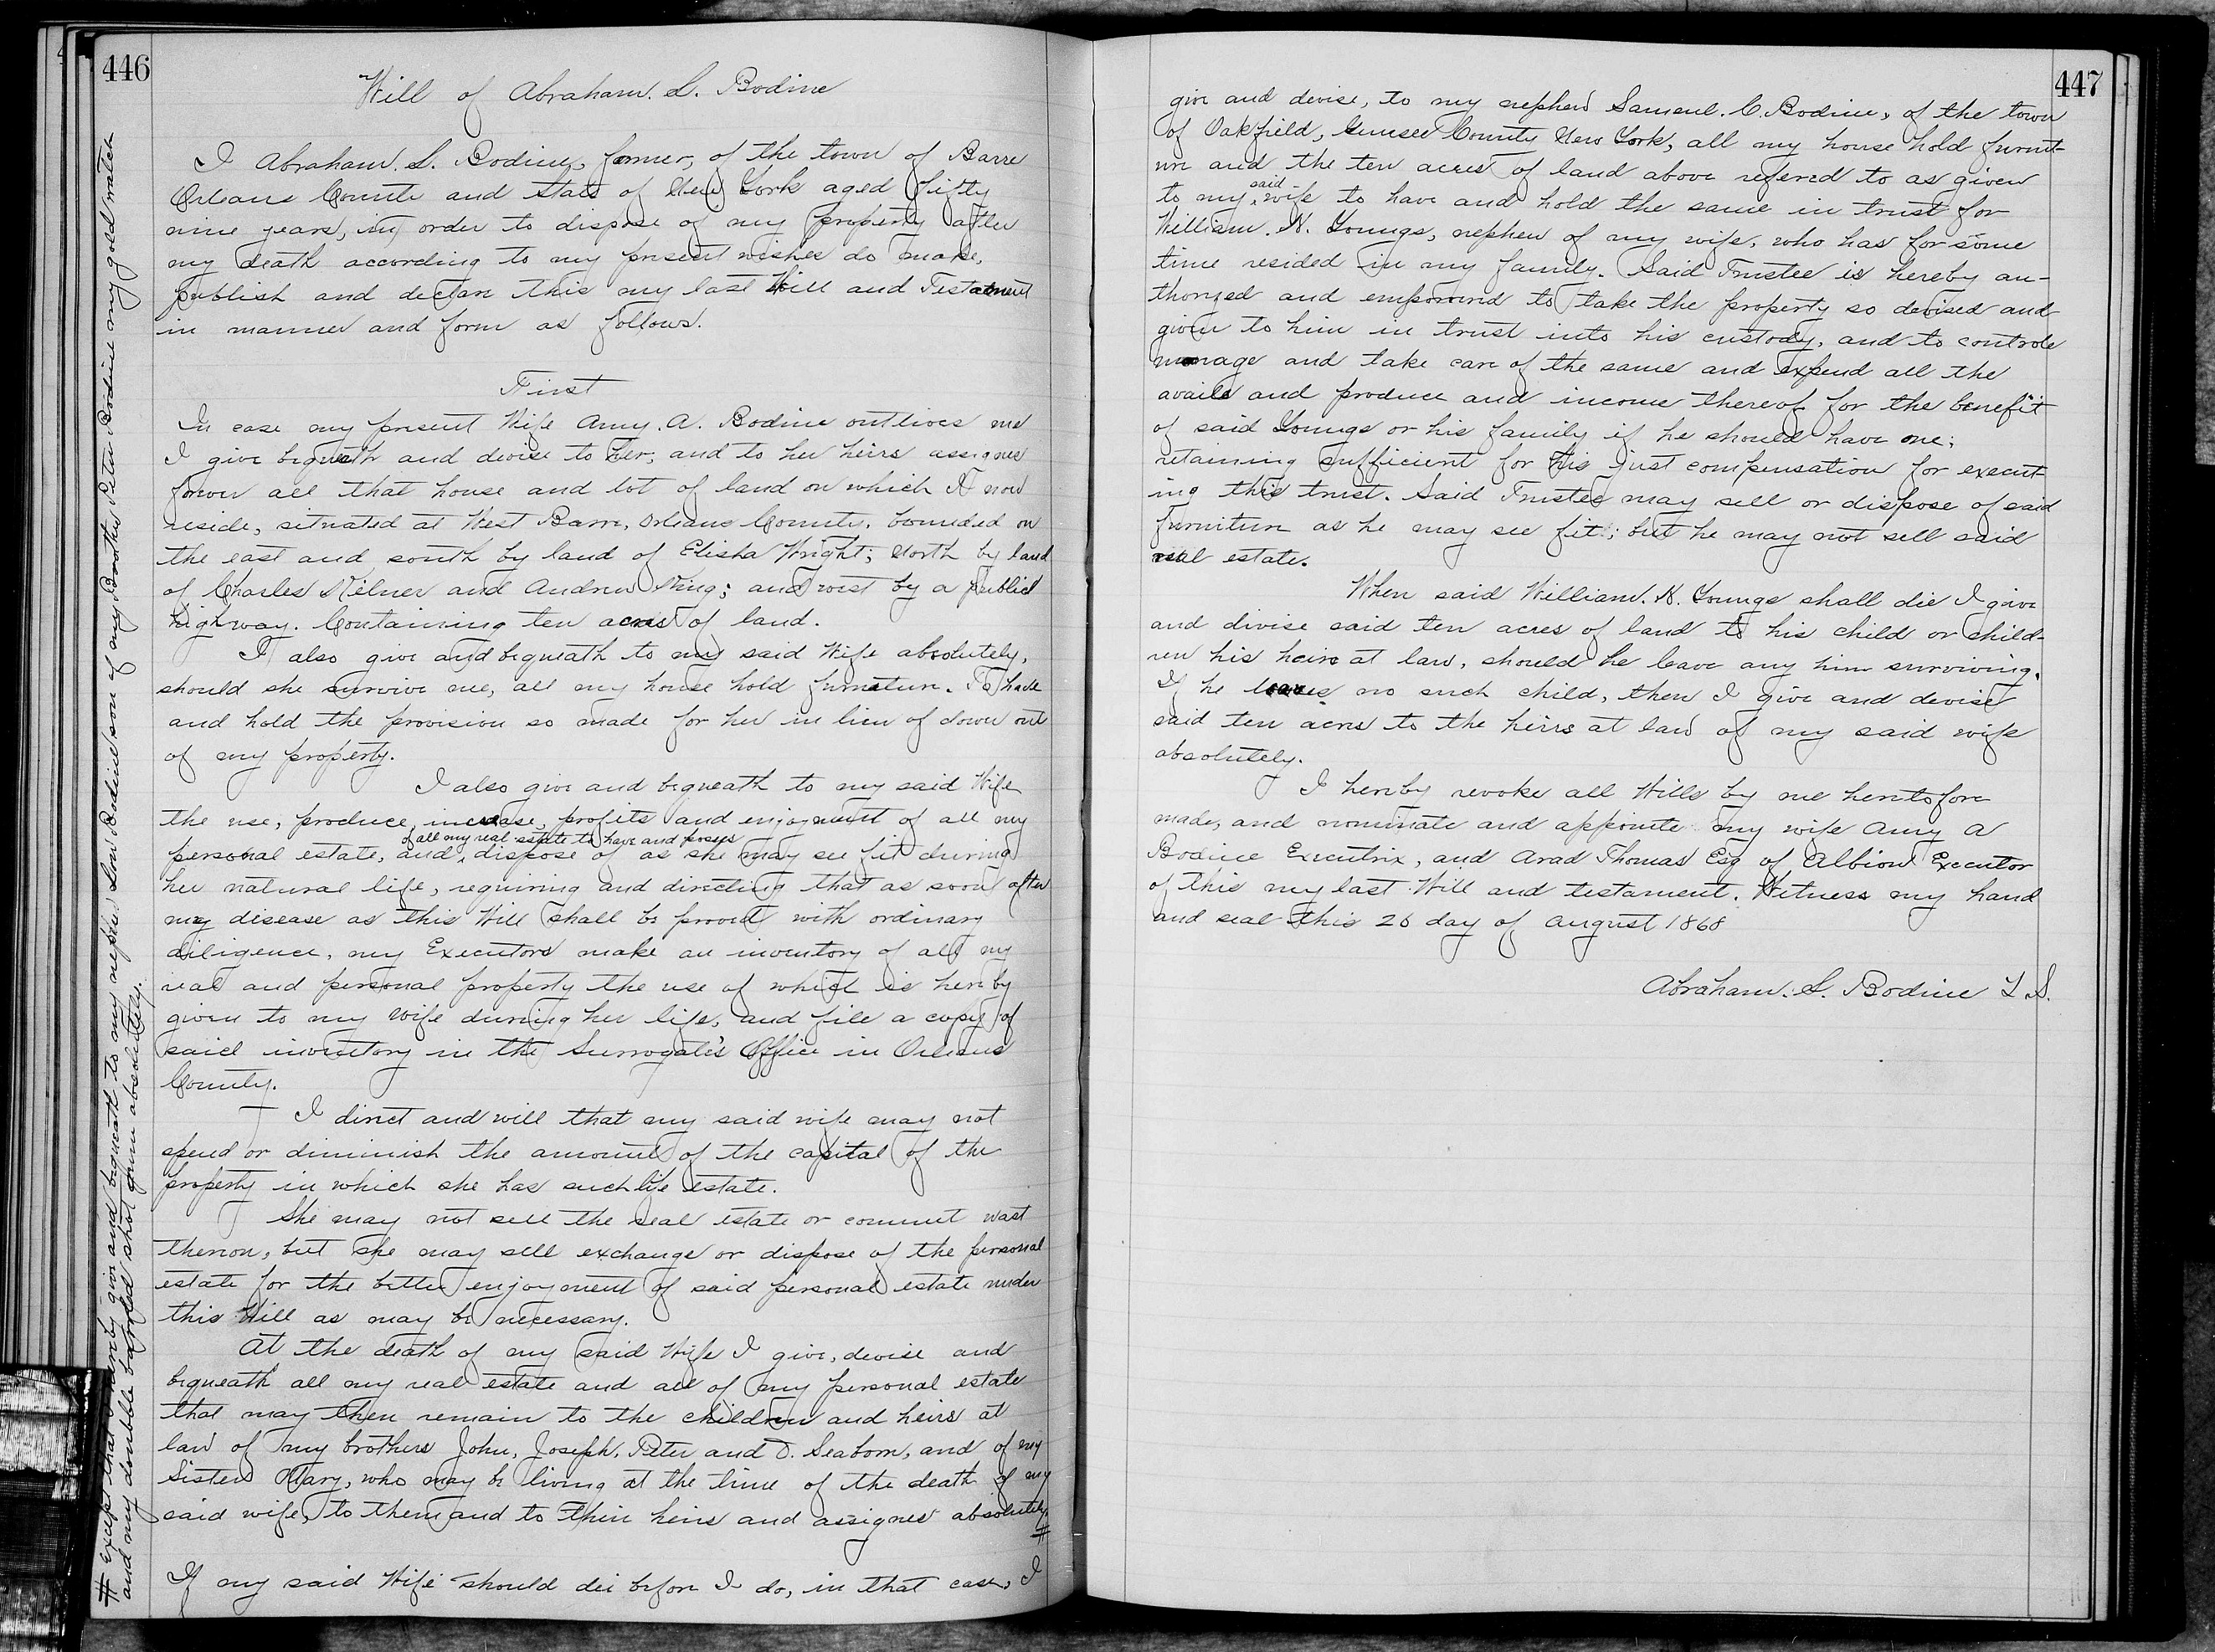 446
Will of Abraham. S. Bodine
I Abraham. S. Bodine, farmer, of the town of Barre
Orleans County and State of New York aged fifty
nine years, in order to dispose of my property after
my death according to my present wishes do make,
publish and declare this my last Will and Testament
in manner and form as follows.
First
In case my present Wife Amy. A. Bodine outlives me
I give bequeath and devise to her, and to her heirs assignes
forever all that house and lot of land on which I now
reside, situated at West Barre, Orleans County, bounded on
the east and south by land of Elisha Wright; North by land
of Charles Milner and Andrew King; and west by a public
highway. Containing ten acres of land.
I also give and bequeath to my said Wife absolutely,
should she survive me, all my house hold furneture. To have
and hold the provision so made for her in lieu of dower out
of my property.
I also give and bequeath to my said Wife
the use, produce, increase, profits and enjoyment of all my
of all my real estate to have and posess
personal estate, and, dispose of as she may see fit during
her natural life, requiring and directing that as soon after
my disease as this Will shall be proved with ordinary
diligence, my Executors make an inventory of all my
real and personal property the use of which is hereby
given to my wife during her life, and file a copy of
said inventory in the Surrogate's Office in Orleans
County.
I direct and will that my said wife may not
spend or diminish the amount of the capital of the
property in which she has such life estate.
She may not sell the real estate or commit wast
thereon, but she may sell exchange or dispose of the personal
estate for the better enjoyment of said personal estate under
this Will as may be necessary.
At the death of my said Wife I give, devise and
bequeath all my real estate and all of my personal estate
that may then remain to the children and heirs at
law of my brothers John, Joseph, Peter and D. Seaborn, and of my
Sister Mary, who may be living at the time of the death of my
said wife, to them and to their heirs and assignes absolutely.
#
If my said Wife should die before I do, in that case, I
# Except that I hereby give and bequeath to my nephew Lon Bodine son of my Brother Peter Bodine my gold watch
and my double barreled shot gun absolutely.
447
give and devise, to my nephew Samuel. C. Bodine, of the town
of Oakfield, Genesee County New York, all my house hold furnit-
ure and the ten acres of land above refered to as given
to my said wife to have and hold the same in trust for
William. K. Youngs, nephew of my wife, who has for some
time resided in my family. Said Trustee is hereby au-
thorized and empowered to take the property so devised and
given to him in trust into his custody, and to controle
manage and take care of the same and expend all the
avails and produce and income thereof for the benefit
of said Youngs or his family if he should have one;
retaining sufficient for his just compensation for execut-
ing this trust. Said Trustee may sell or dispose of said
furniture as he may see fit; but he may not sell said
real estate.
When said William. K. Youngs shall die I give
and divise said ten acres of land to his child or child-
ren his heirs at law, should he leave any him surviving.
If he leaves no such child, then I give and devise
said ten acres to the heirs at law of my said wife
absolutely.
I hereby revoke all Wills by me heretofore
made, and nominate and appointe my wife Amy A
Bodine Executrix, and Arad Thomas Esq of Albion Executor
of this my last Will and testament. Witness my hand
and seal this 26 day of August 1868
Abraham. S. Bodine L S.